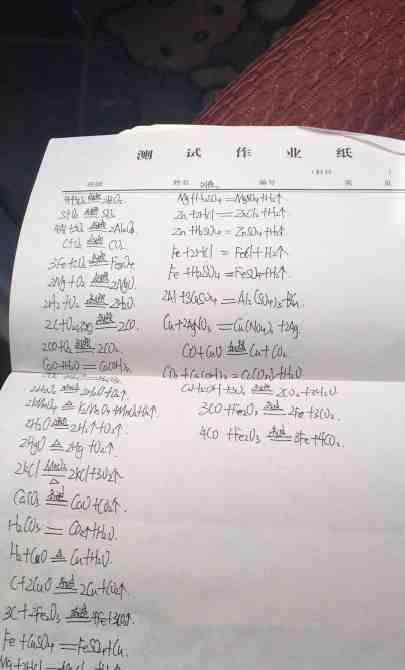 测 试 作 业 纸
姓名 编号
S+O₂ 点燃 SO₂
C+O₂ 点燃 CO₂
3Fe+2O₂ 点燃 Fe₃O₄
2Mg+O₂ 点燃 2MgO
2H₂+O₂ 点燃 2H₂O
2CO+O₂ 点燃 2CO₂
CaO+H₂O=Ca(OH)₂
2H₂O₂ 2H₂O+O₂↑
2KMnO₄ △ K₂MnO₄+MnO₂+O₂↑
2H₂O 通电 2H₂↑+O₂↑
2HgO △ 2Hg+O₂↑
2KCl MnO₂ △ 2KCl+3O₂↑
CaCO₃ 高温 CaO+CO₂↑
H₂CO₃=CO₂↑+H₂O
H₂+CuO △ Cu+H₂O
C+2CuO 高温 2Cu+CO₂↑
3C+2Fe₂O₃ 高温 4Fe+3CO₂↑
Fe+CuSO₄=FeSO₄+Cu
Mg+H₂SO₄=MgSO₄+H₂↑
Zn+2HCl=ZnCl₂+H₂↑
Zn+H₂SO₄=ZnSO₄+H₂↑
Fe+2HCl=FeCl+H₂↑
Fe+H₂SO₄=FeSO₄+H₂↑
2Al+3CuSO₄=Al₂(SO₄)₃+3Cu
Cu+2AgNO₃=Cu(NO₃)₂+2Ag
CO+CuO 高温 Cu+CO₂
CO₂+Ca(OH)₂=CaCO₃+H₂O
3CO+Fe₂O₃ 高温 2Fe+3CO₂
4CO+Fe₂O₃ 高温 3Fe+4CO₂